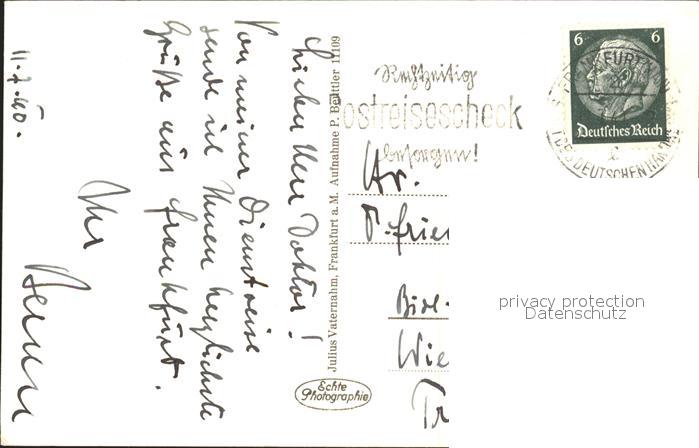 11.7.40.
Lieber Herr Doktor!
Von meiner Dienstreise
sende ich Ihnen herzlichste
Grüße aus Frankfurt.
Ihr
Julius Vaternahm, Frankfurt a. M. Aufnahme P. Beuttler 11109
Echte
Photographie
Rechtzeitig
Postreisescheck
besorgen!
6 6
Deutsches Reich
FRANKFURT
DES DEUTSCHEN HAND
Hr.
Wie
Tr
privacy protection
Datenschutz